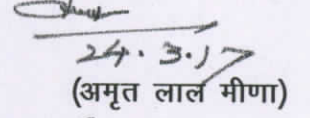 24.3.17
(अमृत लाल मीणा)